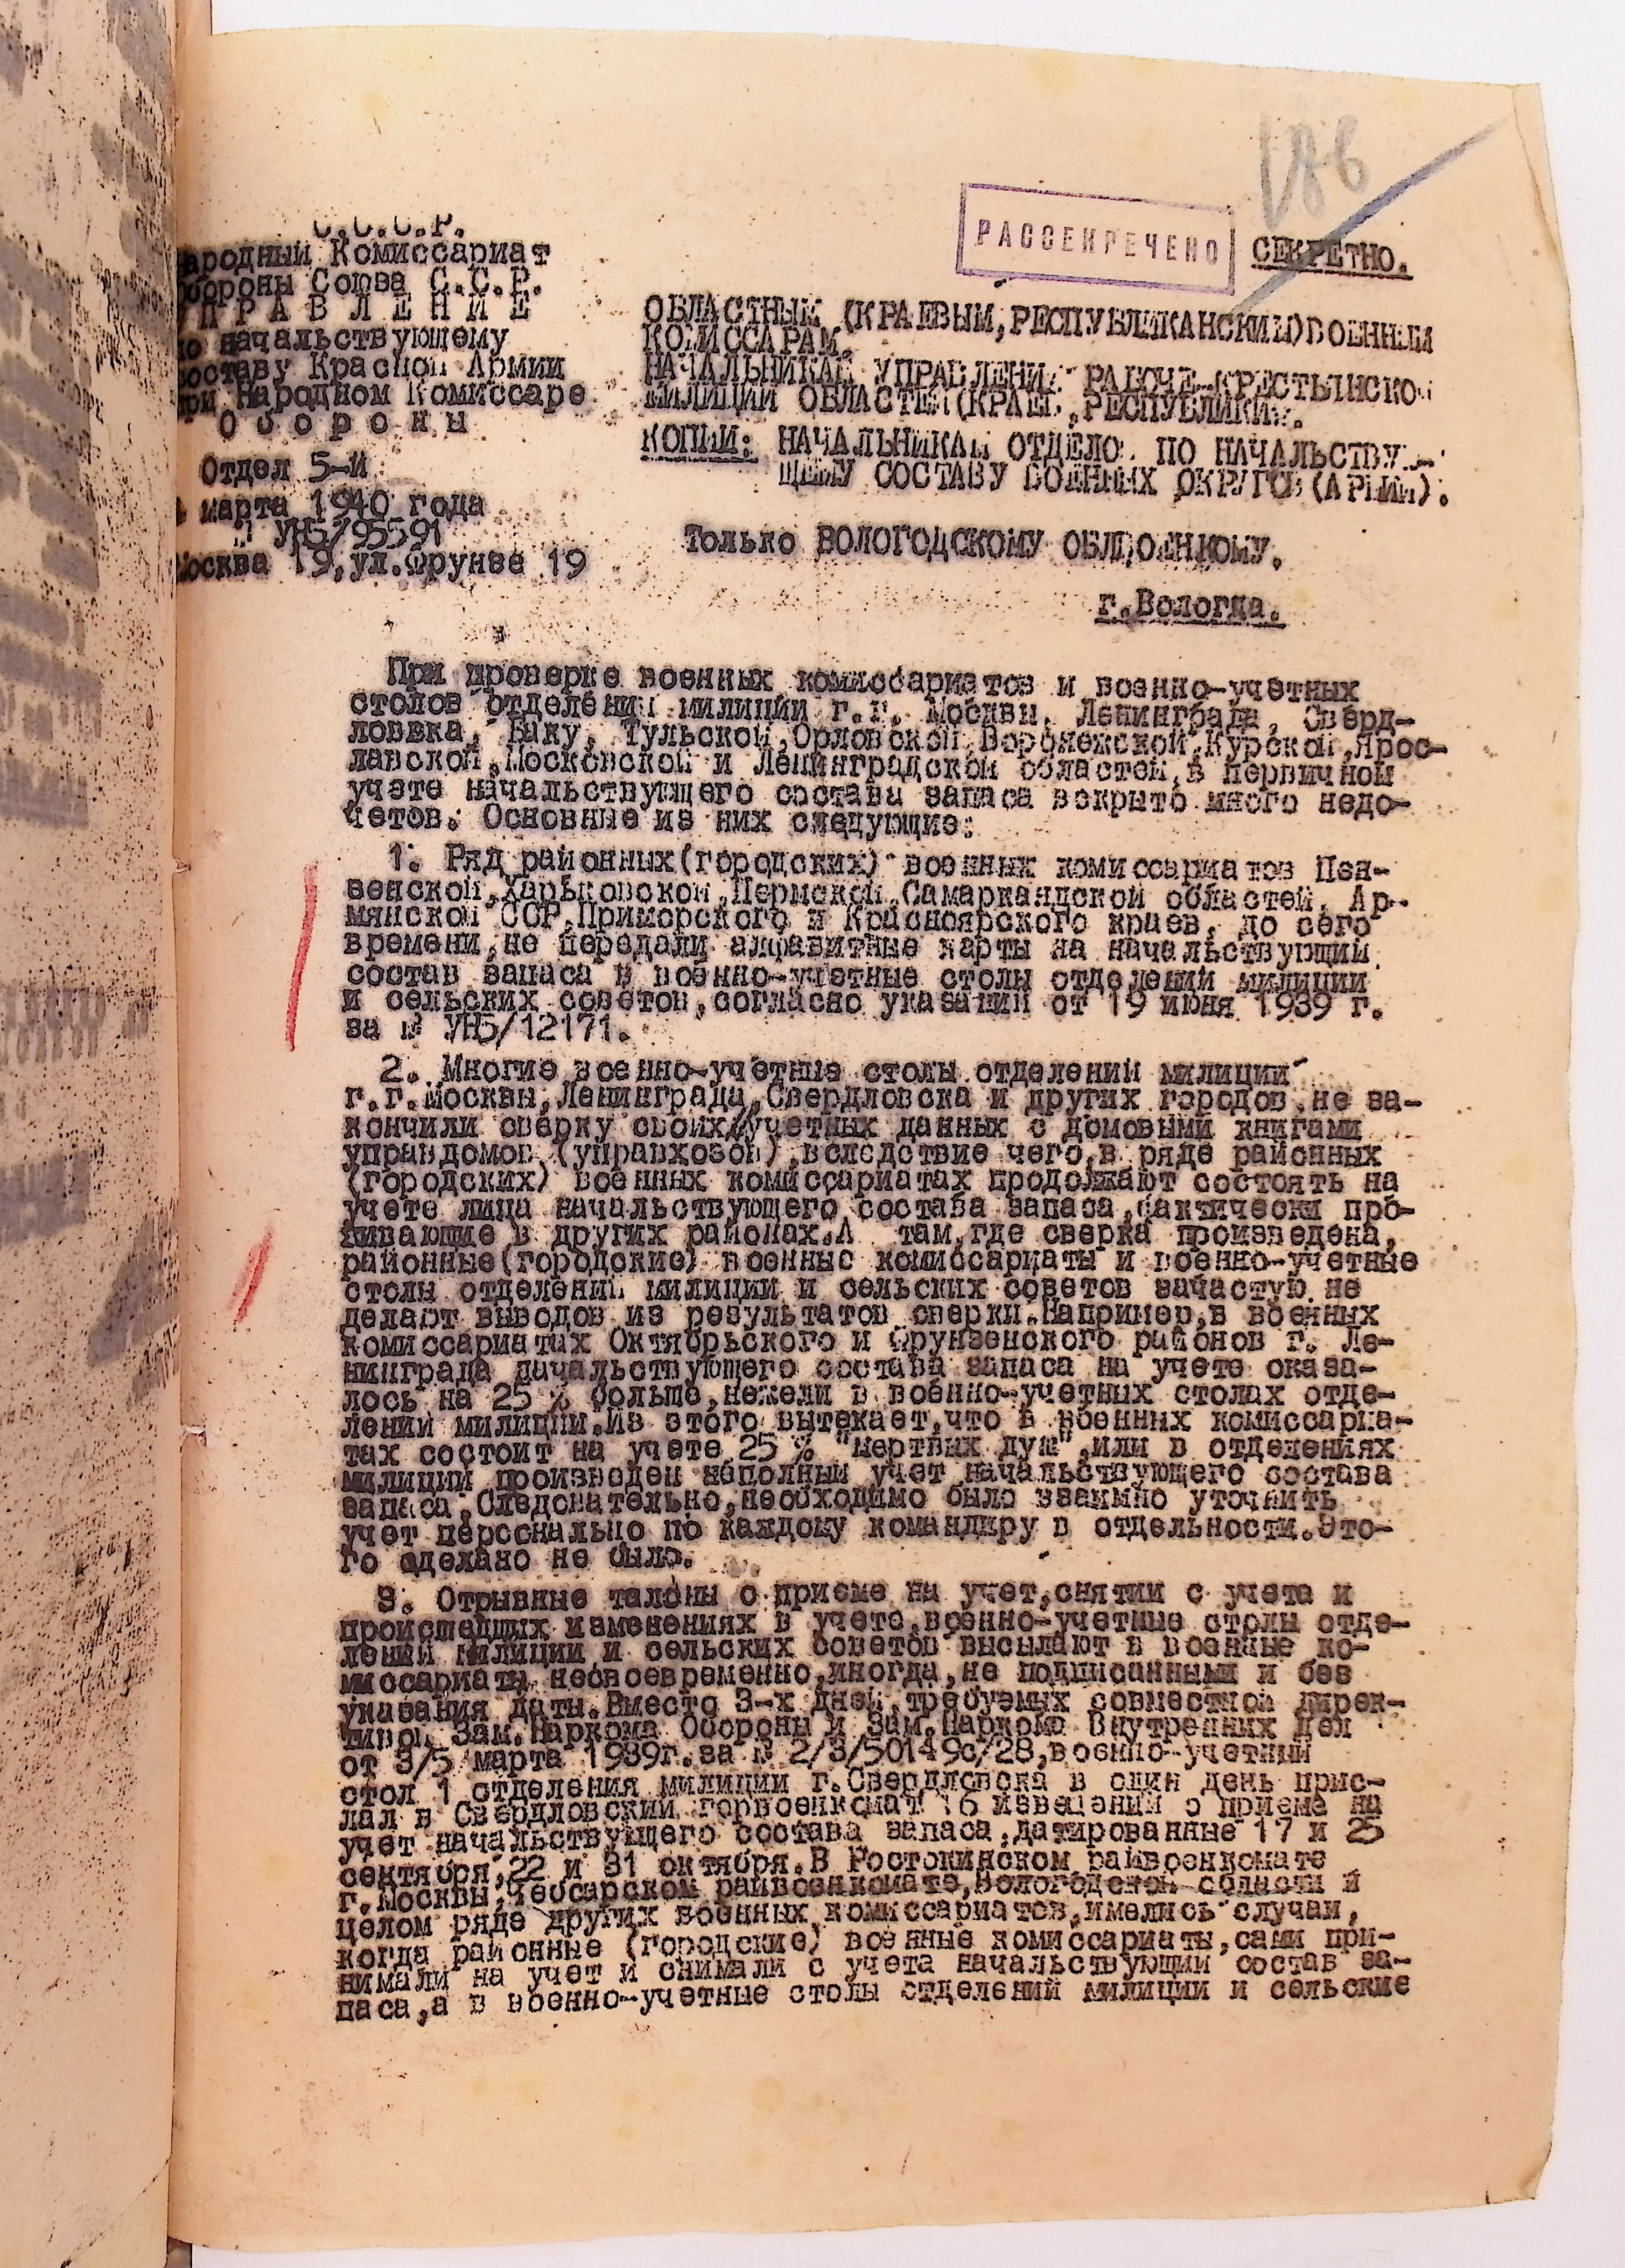 186
РАССЕКРЕЧЕНО
СЕКРЕТНО.
С.С.С.Р.
ародный Комиссариат
бороны Союза С.С.Р.
ПРАВЛЕНИЕ
о начальствующему
составу Красной Армии
ри Народном Комиссаре
Обороны
Отдел 5-й
марта 1940 года
№ УН5/95591
Москва 19,ул.Фрунзе 19
ОБЛАСТНЫМ (КРАЕВЫМ,РЕСПУБЛИКАНСКИМ)ВОЕННЫМ
КОМИССАРАМ.
НАЧАЛЬНИКАМ УПРАВЛЕНИЙ РАБОЧЕ-КРЕСТЬЯНСКОЙ
МИЛИЦИИ ОБЛАСТЕЙ(КРАЕВ,РЕСПУБЛИКИ).
КОПИИ: НАЧАЛЬНИКАМ ОТДЕЛОВ ПО НАЧАЛЬСТВУЮ-
ЩЕМУ СОСТАВУ ВОЕННЫХ ОКРУГОВ(АРМИИ).
Только ВОЛОГОДСКОМУ ОБЛВОЕНКОМУ.
г.Вологда.
При проверке военных комиссариатов и военно-учетных
столов отделений милиции г.г. Москвы, Ленинграда, Сверд-
ловска, Баку, Тульской,Орловской,Воронежской,Курской,Ярос-
лавской,Московской и Ленинградской областей,в первичном
учете начальствующего состава запаса вскрыто много недо-
четов. Основные из них следующие:
1. Ряд районных(городских) военных комиссариатов Пен-
зенской,Харьковской,Пермской,Самаркандской областей, Ар-
мянской ССР,Приморского и Красноярского краев, до сего
времени,не передали алфавитные карты на начальствующий
состав запаса в военно-учетные столы отделений милиции
и сельских советов,согласно указаний от 19 июня 1939 г.
за № УН5/12171.
2. Многие военно-учетные столы отделений милиции
г.г.Москвы,Ленинграда,Свердловска и других городов,не за-
кончили сверку своих учетных данных с домовыми книгами
управдомов (управхозов),вследствие чего,в ряде районных
(городских) военных комиссариатах продолжают состоять на
учете лица начальствующего состава запаса,фактически про-
живающие в других районах.А там,где сверка произведена,
районные(городские) военные комиссариаты и военно-учетные
столы отделений милиции и сельских советов зачастую не
делают выводов из результатов сверки.Например,в военных
комиссариатах Октябрьского и Фрунзенского районов г. Ле-
нинграда начальствующего состава запаса на учете оказа-
лось на 25 % больше,нежели в военно-учетных столах отде-
лений милиции.Из этого вытекает,что в военных комиссариа-
тах состоит на учете 25 % "мертвых душ",или в отделениях
милиции произведен неполный учет начальствующего состава
запаса.Следовательно,необходимо было взаимно уточнить
учет персонально по каждому командиру в отдельности.Это-
го сделано не было.
3. Отрывные талоны о приеме на учет,снятии с учета и
происшедших изменениях в учете,военно-учетные столы отде-
лений милиции и сельских советов высылают в военные ко-
миссариаты несвоевременно,иногда,не подписанными и без
указания даты.Вместо 3-х дней,требуемых совместной дирек-
тивой Зам.Наркома Обороны и Зам.Наркома Внутренних Дел
от 3/5 марта 1939г.за № 2/3/50149с/28,военно-учетный
стол 1 отделения милиции г.Свердловска в один день прис-
лал в Свердловский горвоенкомат 16 извещений о приеме на
учет начальствующего состава запаса,датированные 17 и 25
сентября,22 и 31 октября.В Ростокинском райвоенкомате
г.Москвы,Чебсарском райвоенкомате,Вологодской области и
целом ряде других военных комиссариатов,имелись случаи,
когда районные (городские) военные комиссариаты,сами при-
нимали на учет и снимали с учета начальствующий состав за-
паса,а в военно-учетные столы отделений милиции и сельские